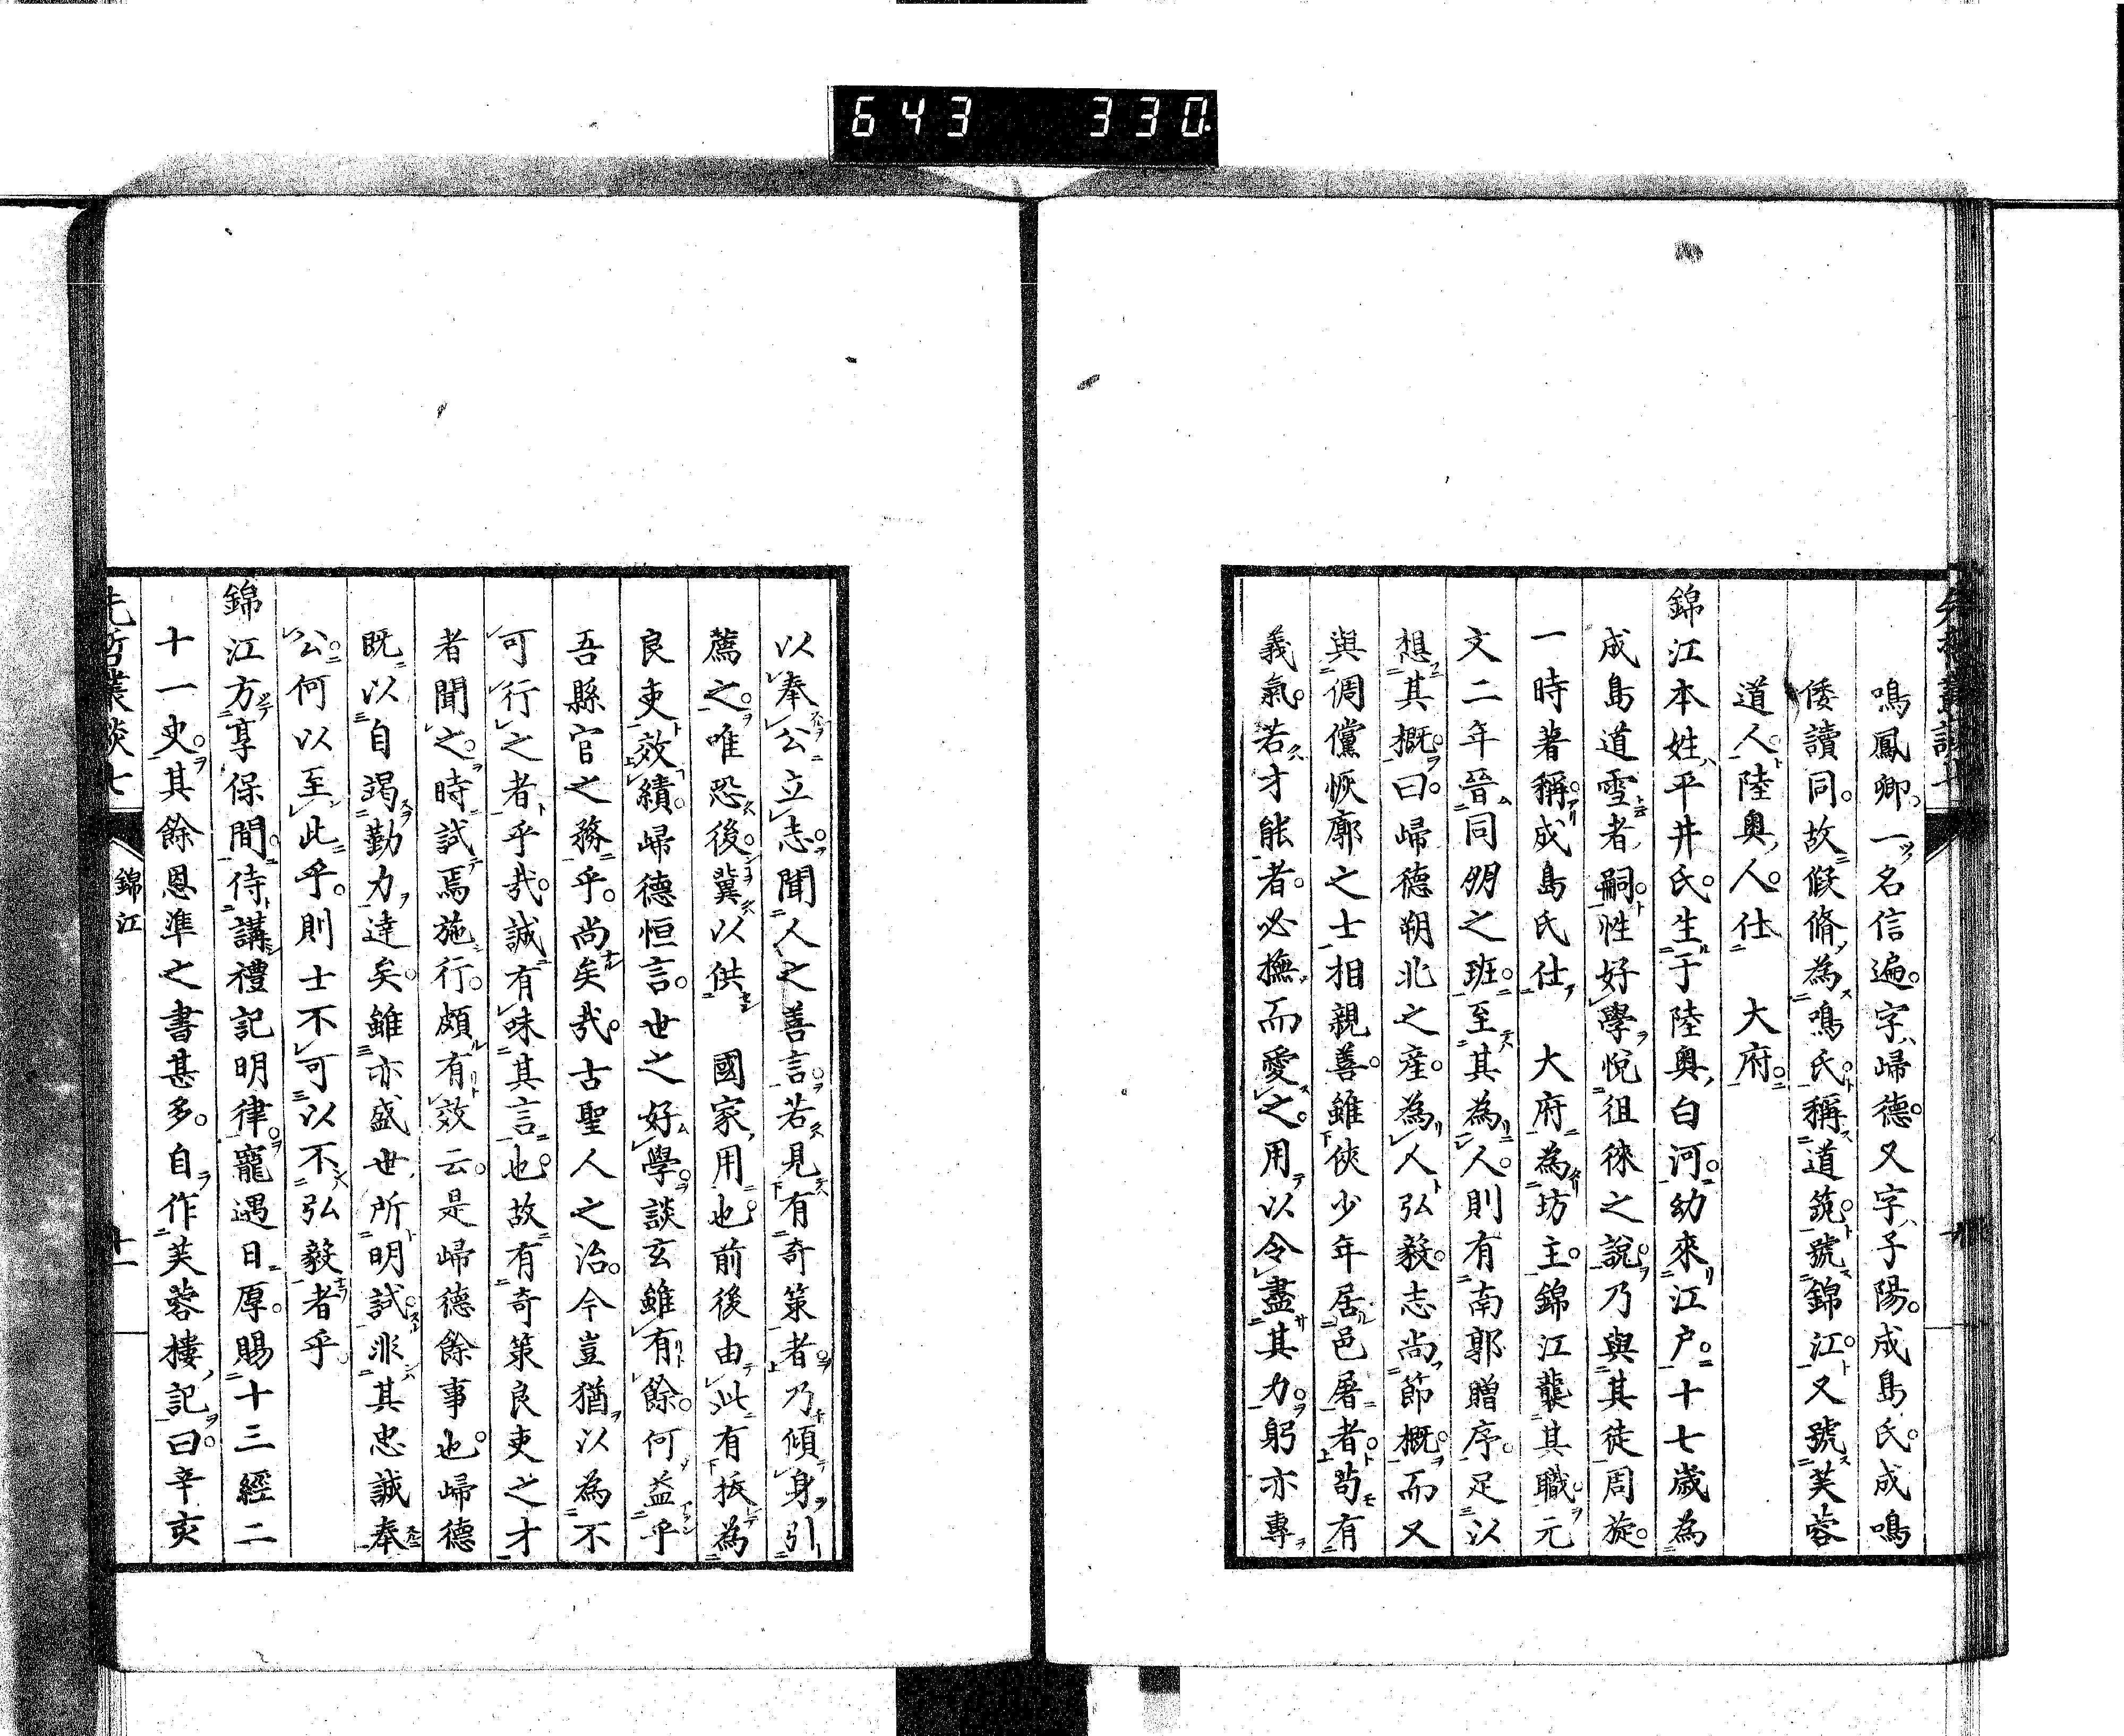 643 330
鳴鳳卿一名信遍字歸德又字子陽成島氏成鳴
倭讀同故假脩為鳴氏稱道筑號錦江又號芙蓉
道人陸奧人仕 大府
錦江本姓平井氏生于陸奧白河幼來江户十七歲為
成島道雪者嗣性好學悅徂徠之說乃與其徒周旋
一時著稱成島氏仕 大府為坊主錦江襲其職元
文二年晉同朋之班至其為人則有南郭贈序足以
想其概曰歸德朔北之產為人弘毅志尚節概而又
與倜儻恢廓之士相親善雖俠少年居邑屠者苟有
義氣若才能者必撫而愛之用以令盡其力躬亦專
以奉公立志聞人之善言若見有奇策者乃傾身引
薦之唯恐後冀以供 國家用也前後由此有振為
良吏效績歸德恒言世之好學談玄雖有餘何益乎
吾縣官之務乎尚矣哉古聖人之治今豈猶以為不
可行之者乎哉誠有味其言也故有奇策良吏之才
者聞之時試焉施行頗有效云是歸德餘事也歸德
既以自竭勤力達矣雖亦盛世所明試非其忠誠奉
公何以至此乎則士不可以不弘毅者乎
錦江方享保間侍講禮記明律寵遇日厚賜十三經二
十一史其餘恩準之書甚多自作芙蓉樓記曰辛亥
先哲叢談七
錦江
十一